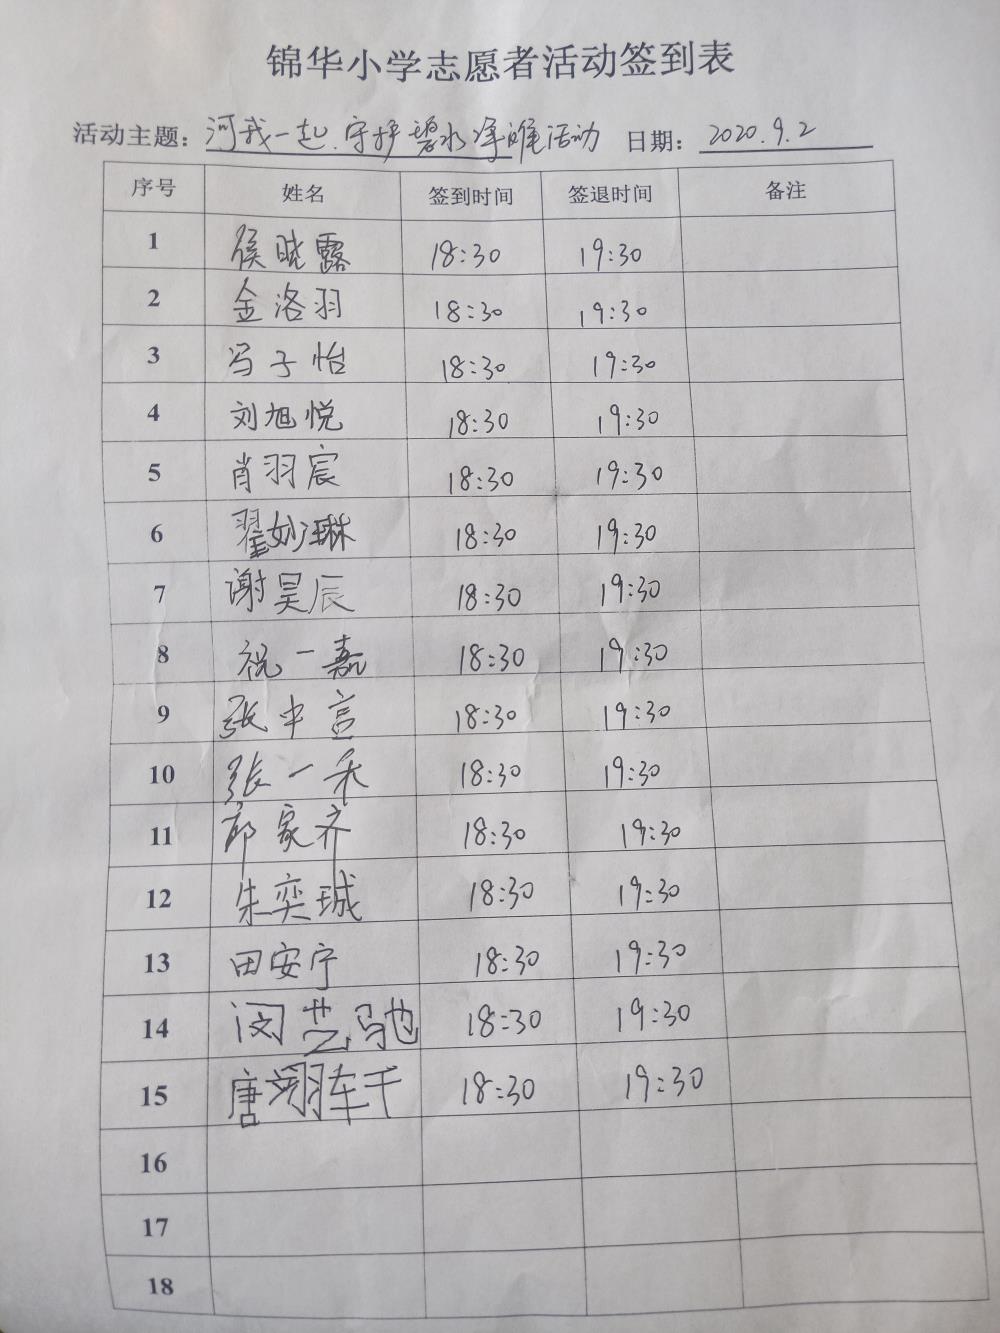 锦华小学志愿者活动签到表
活动主题：河我一起.守护碧水净滩活动 日期：2020.9.2
序号 姓名 签到时间 签退时间 备注
1 侯晓露 18:30 19:30
2 金洛羽 18:30 19:30
3 冯子怡 18:30 19:30
4 刘旭悦 18:30 19:30
5 肖羽宸 18:30 19:30
6 翟妙琳 18:30 19:30
7 谢昊辰 18:30 19:30
8 祝一嘉 18:30 19:30
9 张中言 18:30 19:30
10 张一禾 18:30 19:30
11 家齐 18:30 19:30
12 朱奕珹 18:30 19:30
13 田安宁 18:30 19:30
14 闵艺驰 18:30 19:30
15 唐翊轩 18:30 19:30
16
17
18